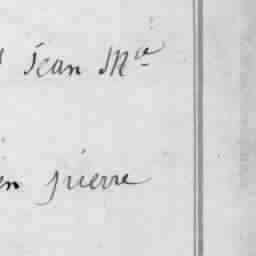 Jean M.ce
en pierre